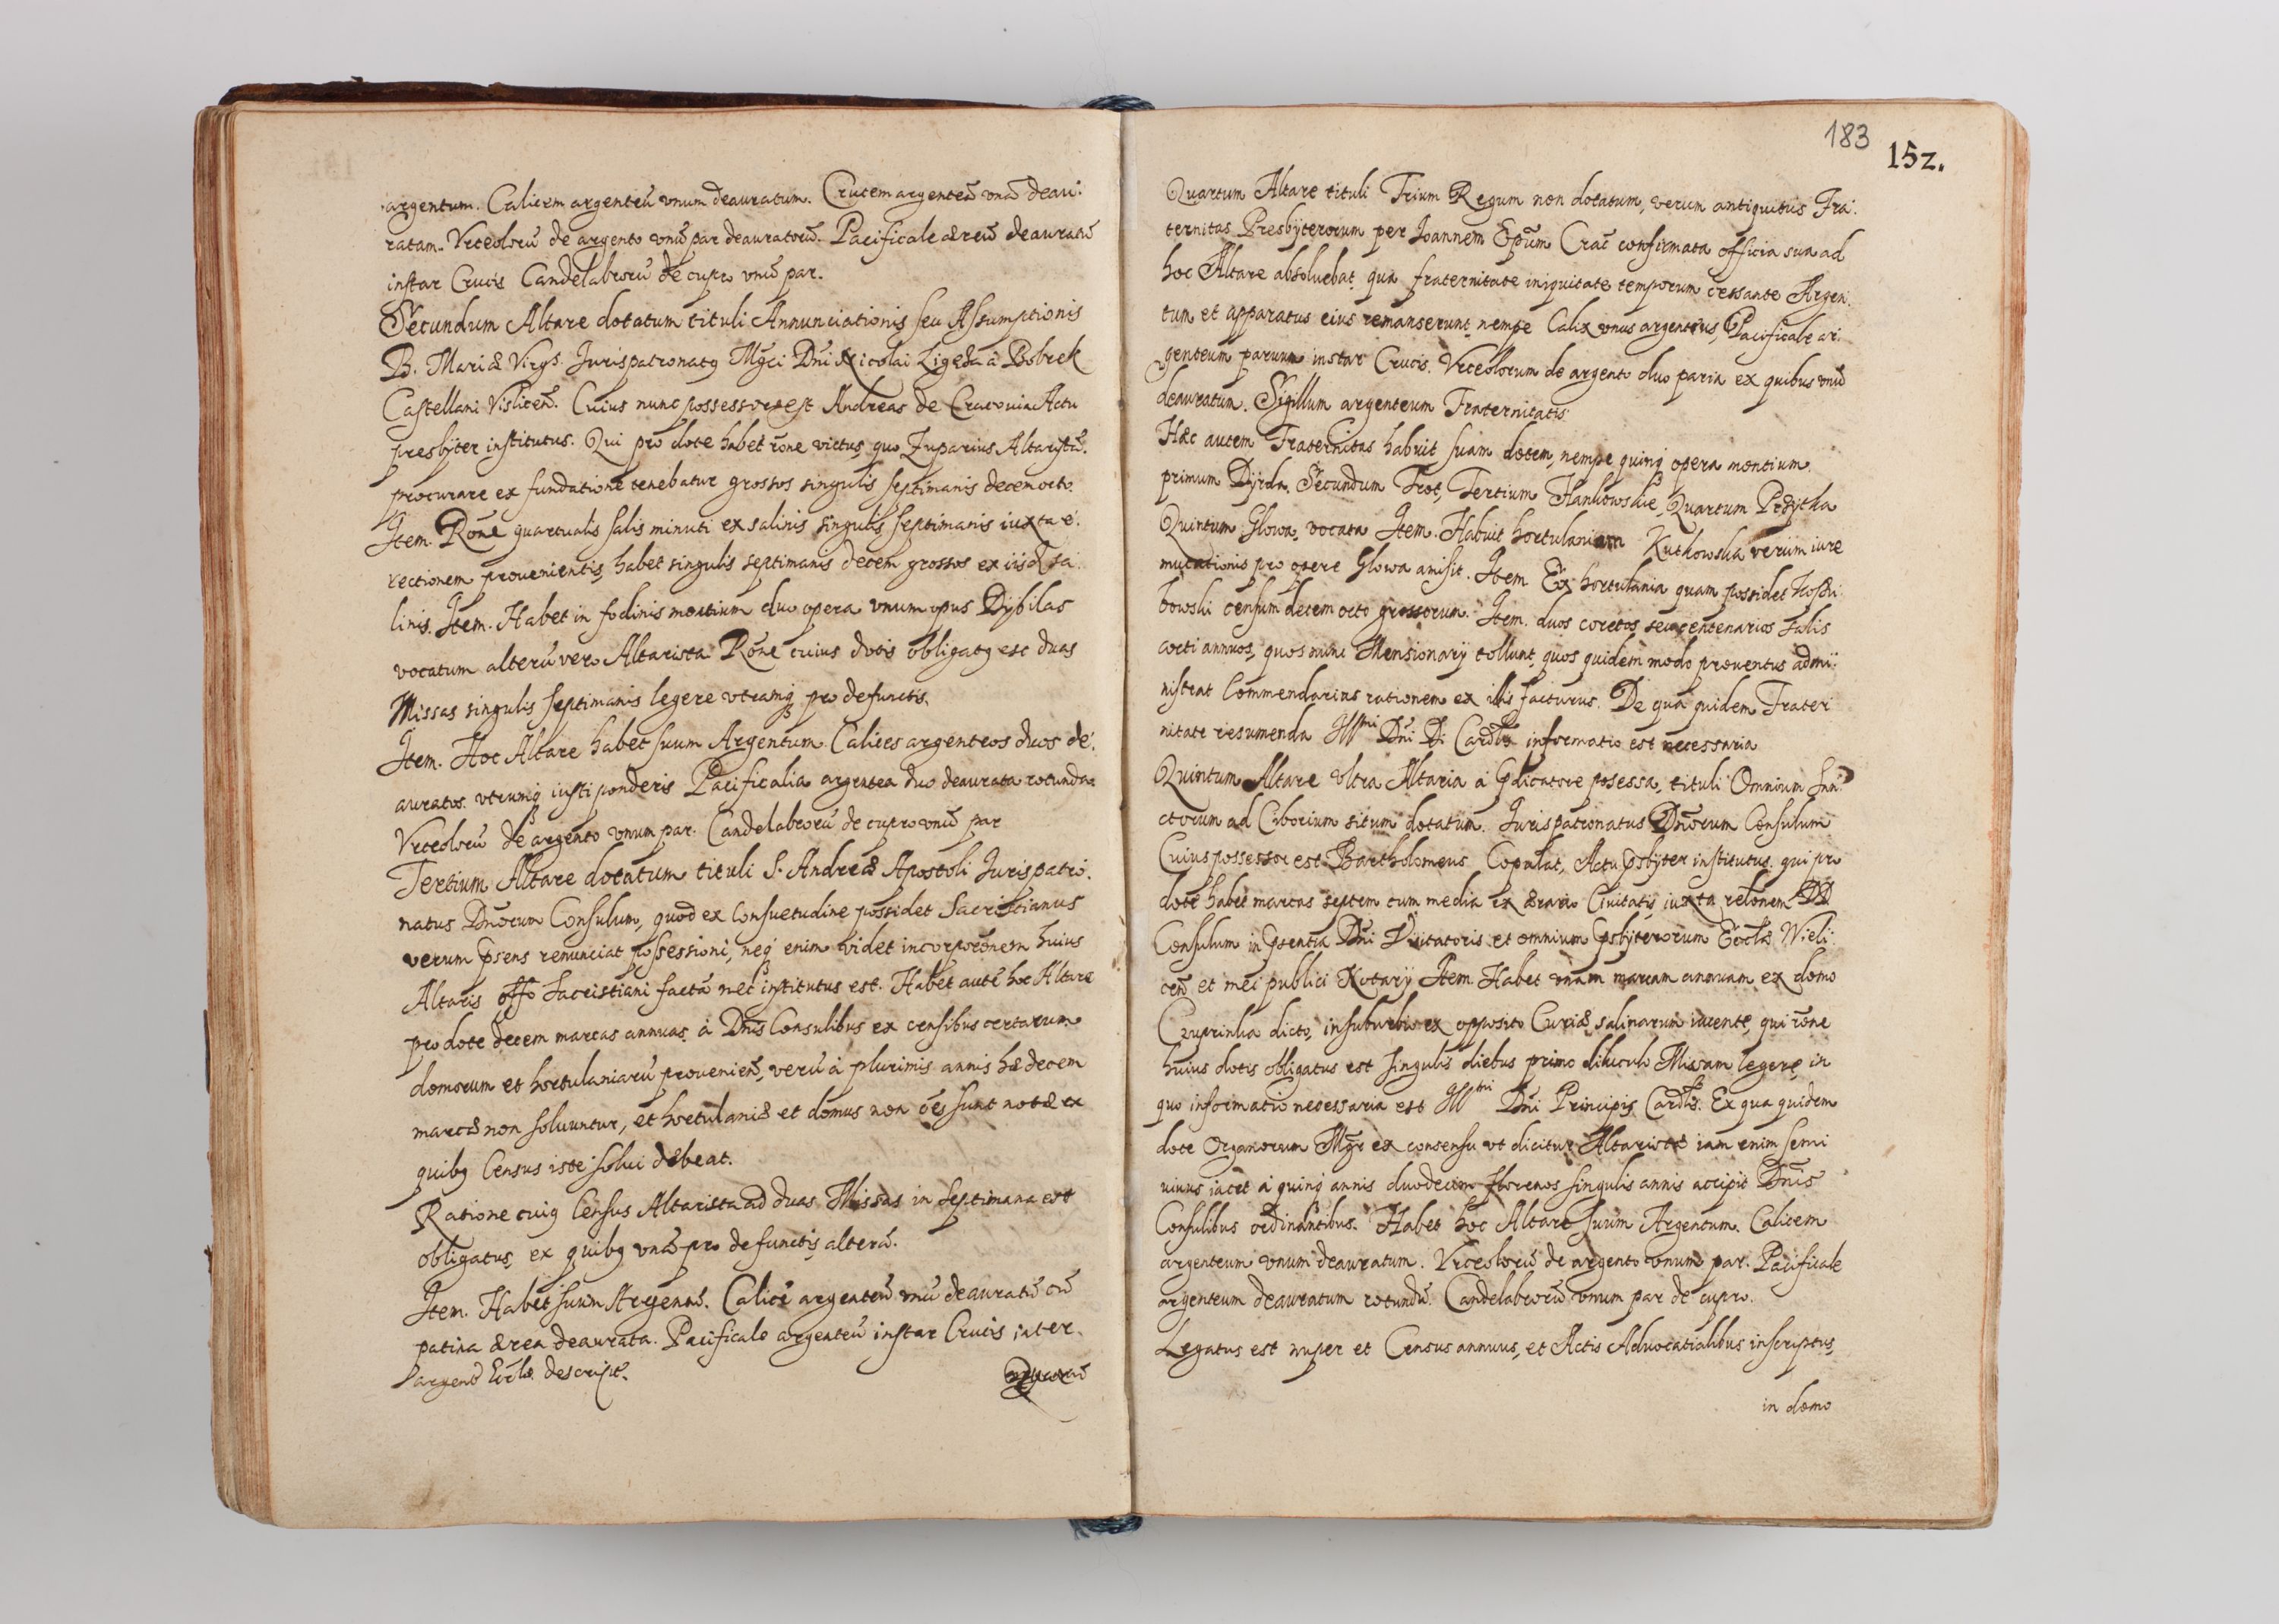 argentum. Calicem argenteū vnum deauratum. Crucem argenteā vnā deau:
ratam. Vrceolorū de argento vnū par deauratorū. Pacificale æreū deauratū
instar Crucis Candelabrorū de cupro vnū par.
Secundum Altare dotatum tituli Annunciationis seu Assumptionis
B. Mariæ Virgs. Jurispatronatꝯ Mgci Dni Nicolai Ligęza à Bobrek
Castellani Vislicen̄. Cuius nunc possessor est Andreas de Cracouia Actu
presbyter institutus. Qui pro dote habet rōne victus, quo Zuparius Altaristā
procurare ex fundatione tenebatur grossos singulis septimanis decemocto.
Item. Rōne quartualis salis minuti ex salinis singulis septimanis iuxta e:
rectionem prouenientis, habet singulis septimanis decem grossos ex iisd sa:
linis. Item. Habet in fodinis montium duo opera vnum opus Dybilas
vocatum alterū vero Altarista Rōne cuius dotis obligatꝯ est duas
Missas singulis septimanis legere vtramq pro defunctis.
Item. Hoc Altare habet suum Argentum. Calices argenteos duos de:
auratos. vtrumq iusti ponderis Pacificalia argentea duo deaurata rotunda.
Vrceolorū de argento vnum par. Candelabrorū de cupro vnū par
Tertium Altare dotatum tituli S. Andreæ Apostoli Jurispatro:
natus Dnorum Consulum, quod ex Consuetudine possidet Sacristianus
verum psens renunciat possessioni, neq enim videt incorporōnem huius
Altaris offo Sacristiani factā nec institutus est. Habet autē hoc Altare
pro dote decem marcas annuas, à Dnis Consulibus ex censibus certarum
domorum et hortulaniarū prouenien̄, verū à plurimis annis hæ decem
marcæ non soluuntur, et hortulaniæ et domus non oēs sunt notæ ex
quibꝯ Census iste solui debeat.
Ratione cuiꝯ Census Altarista ad duas Missas in septimana est
obligatus, ex quibꝯ vnā pro defunctis, alterā.
Item. Habet suum Argentū. Calicē argenteū vnū deauratū cū
patina ærea deaurata. Pacificale argenteū instar Crucis inter
argentū Eccle descript.
183
152.
Quartum Altare tituli Trium Regum non dotatum, verum antiquitus Fra:
ternitas Presbyterorum per Joannem Epum Crac confirmata officia sua ad
hoc Altare absoluebat, qua fraternitate iniquitate temporum cessante Argen:
tum et apparatus eius remanserunt, nempe Calix vnus argenteus, Pacificale ar:
genteum paruum instar Crucis. Vrceolorum de argento duo paria ex quibus vnū
deauratum. Sigillum argenteum Fraternitatis.
Hæc autem Fraternitas habuit suam dotem, nempe quinq opera montium
primum Dyrda. Secundum Trot, Tertium Hankowskie, Quartum
Quintum Glowa, vocata Item. Habuit hortulaniam Kutkowska verum iure
mutationis pro opere Glowa amisit. Item Ex hortulania quam possidet
bowski censum decem octo grossorum. Item. duos coretos seu centenarios salis
cocti annuos, quos nunc Mansionarij tollunt, quos quidem modo prouentus admi:
nistrat Commendarius rationem ex illis facturus. De qua quidem Frater
nitate resumenda Illmi Dni Di Cardlis informatio est necessaria
Quintum Altare vltra Altaria à Pdicatore possessa, tituli Omnium San:
ctorum ad Ciborium situm dotatum. Jurispatronatus Dnorum Consulum
Cuius possessor est Bartholomeus Copulat, Actu Psbyter institutus, qui pro
dote habet marcas septem cum media ex ærario Ciuitatis, iuxta relōnem DD
Consulum in Psentia Dni Visitatoris et omnium Psbyterorum Eccle Wieli:
cen̄ et mei publici Notarij Item. Habet vnam marcam annuam ex domo
Czuprinka dicto, in suburbio ex opposito Curiæ salinarum iacente, qui rōne
huius dotis obligatus est singulis diebus primo diluculo Missam legere, in
quo informatio necessaria est Illmi Dni Principis Cardlis. Ex qua quidem
dote Organorum Mgr ex consensu vt dicitur Altaristæ iam enim semi
uiuus iacet à quinq annis duodecim florenos singulis annis accipit Dnis
Consulibus ordinantibus. Habet hoc Altare suum Argentum. Calicem
argenteum vnum deauratum. Vrceolorū de argento vnum par. Pacificale
argenteum deauratum rotundū. Candelabrorū vnum par de cupro.
Legatus est nuper et Census annuus, et Actis Aduocatialibus inscriptus,
in domo